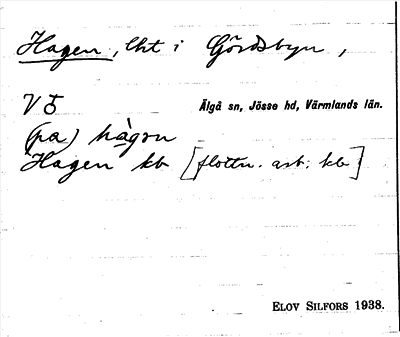 Hagen, lht i Gördsbyn,
V 5 Älgå sn, Jösse hd, Värmlands län.
(pa) hàgɷn
Hagen kb [flottn. arb. kb]
ELOV SILFORS 1938.